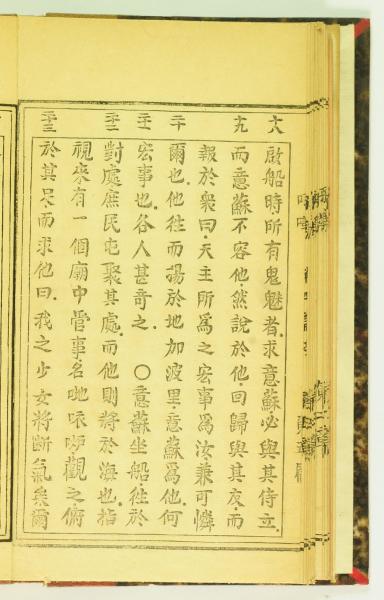 十八 啟船時所有鬼魅者求意蘇必與其侍立
十九 而意蘇不容他然說於他回歸與其友而
報於衆曰天主所為之宏事為汝兼可憐
二十 爾也他徃而揚於地加波里意蘇爲他何
二十一 宏事也各人甚竒之 〇意蘇坐船徃於
二十二 對處庶民屯聚其處而他則將於海也指
視來有一個廟中管事名吔 觀之俯
二十三 於其足而求他曰我之少女將斷氣矣爾